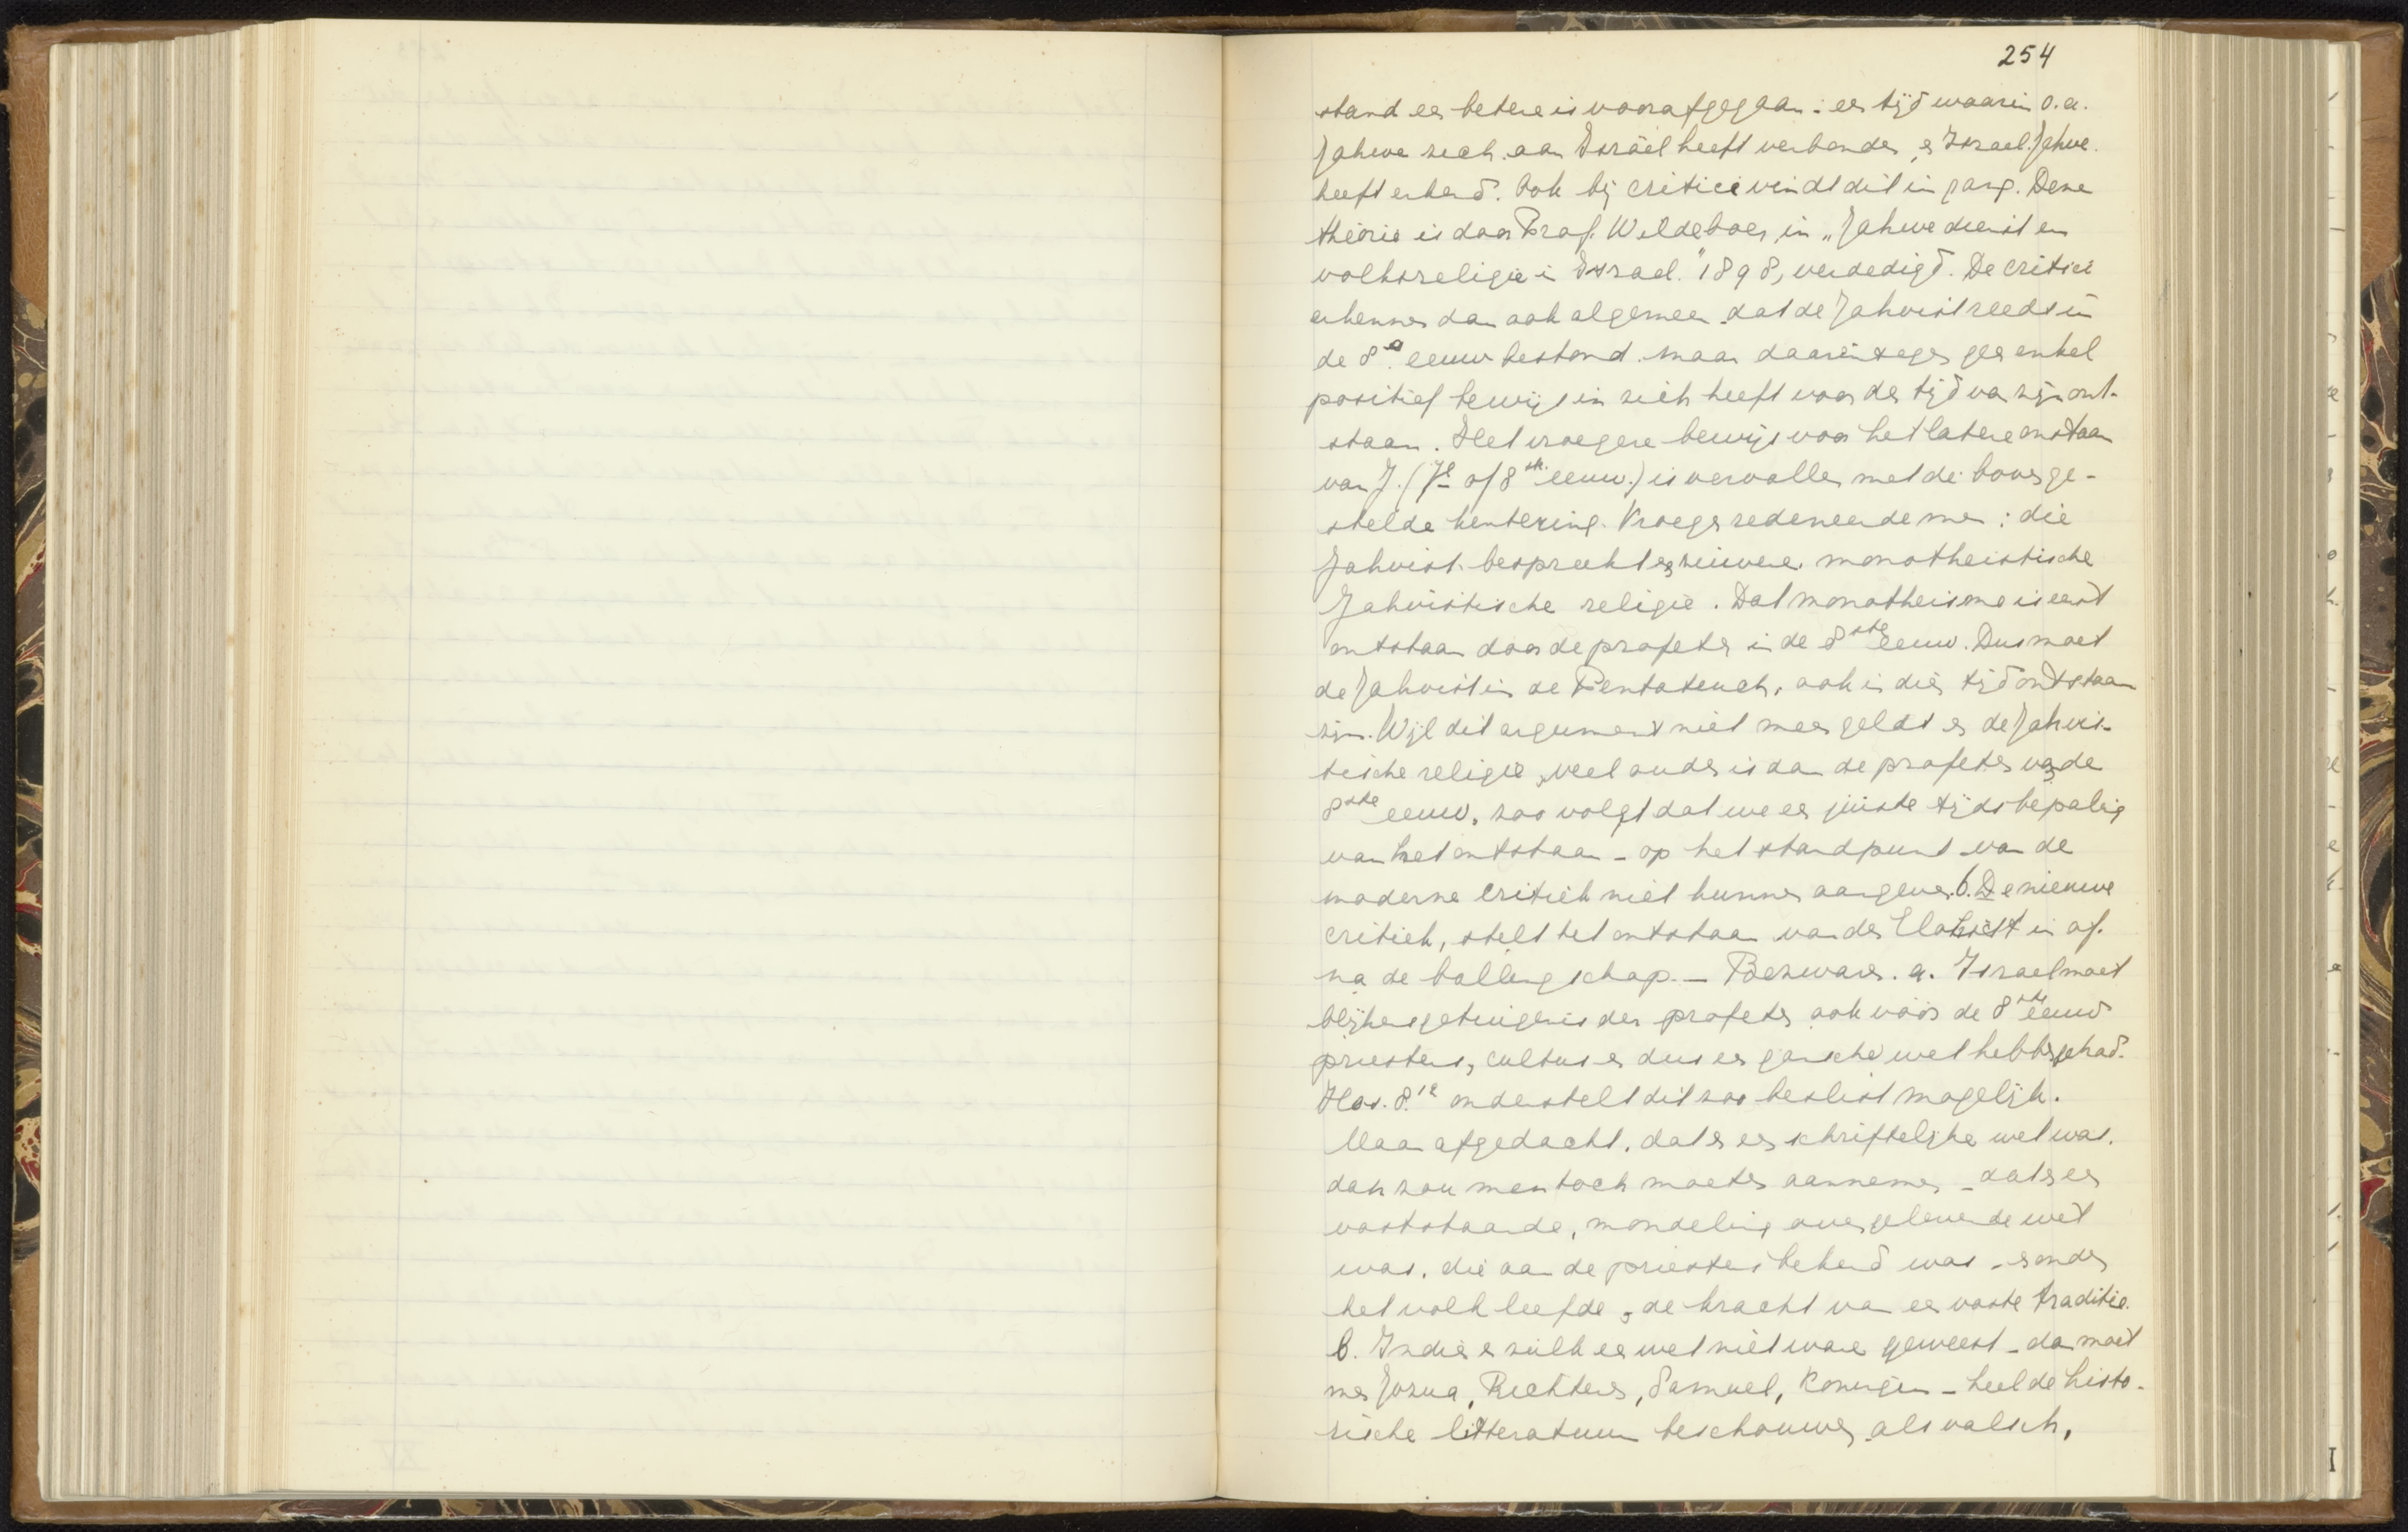 254
stand een betere is voorafgegaan: een tijd waarin o.a.
Jahwe zich aan Israël heeft verbonden en Israel Jahwe
heeft erkend. Ook bij critici vindt dit ingang. Deze
theorie is door Prof. Wildeboer in „Jahwedienst en
volksreligie in Israel." 1898, verdedigd. De critici
erkennen dan ook algemeen dat de Jahvist reeds in
de 8e eeuw bestond. maar daarentegen geen enkel
positief bewijs in zich heeft voor den tijd van zijn ont-
staan. Het vroegere bewijs voor het latere onstaan
van J. (7e of 8ste eeuw.) is vervallen met de boven ge-
stelde kentering. Vroeger redeneerde men: die
Jahvist bespreekt een zuivere monotheistische
Jahvistische religie. Dat monotheisme is eerst
ontstaan door de profeten in de 8ste eeuw. Dus moet
de Jahvist in de Pentateuch, ook in dien tijd ontstaan
zijn. Wijl dit argument niet meer geldt en de Jahvis-
tische religie veel ouder is dan de profeten van de
8ste eeuw, zoo volgt dat we een juiste tijdsbepaling
van het ontstaan - op het standpunt van de
moderne critiek niet kunnen aangeven. 6. De nieuwe
critiek, stelt het ontstaan van den Elohist in of
na de ballingschap. — Bezwaren. a. Israel moet
blijkens getuigenis der profeten ook vóór de 8ste eeuw
priesters, cultus en dus een gansche wet hebben gehad.
Hos. 8.12 onderstelt dit zoo beslist mogelijk.
Maar afgedacht, dat er een schriftelijke wet was.
dan zou men toch moeten aannemen - dat er een
vaststaande, mondeling overgeleverde wet
was, die aan de priesters bekend was - onder
het volk leefde in de kracht van een vaste traditie.
b. Indien er zulk een wet niet ware geweest - dan moet
men Jozua, Richteren, Samuel, Koningen - heel de histo-
rische litteratuur beschouwen als valsch,